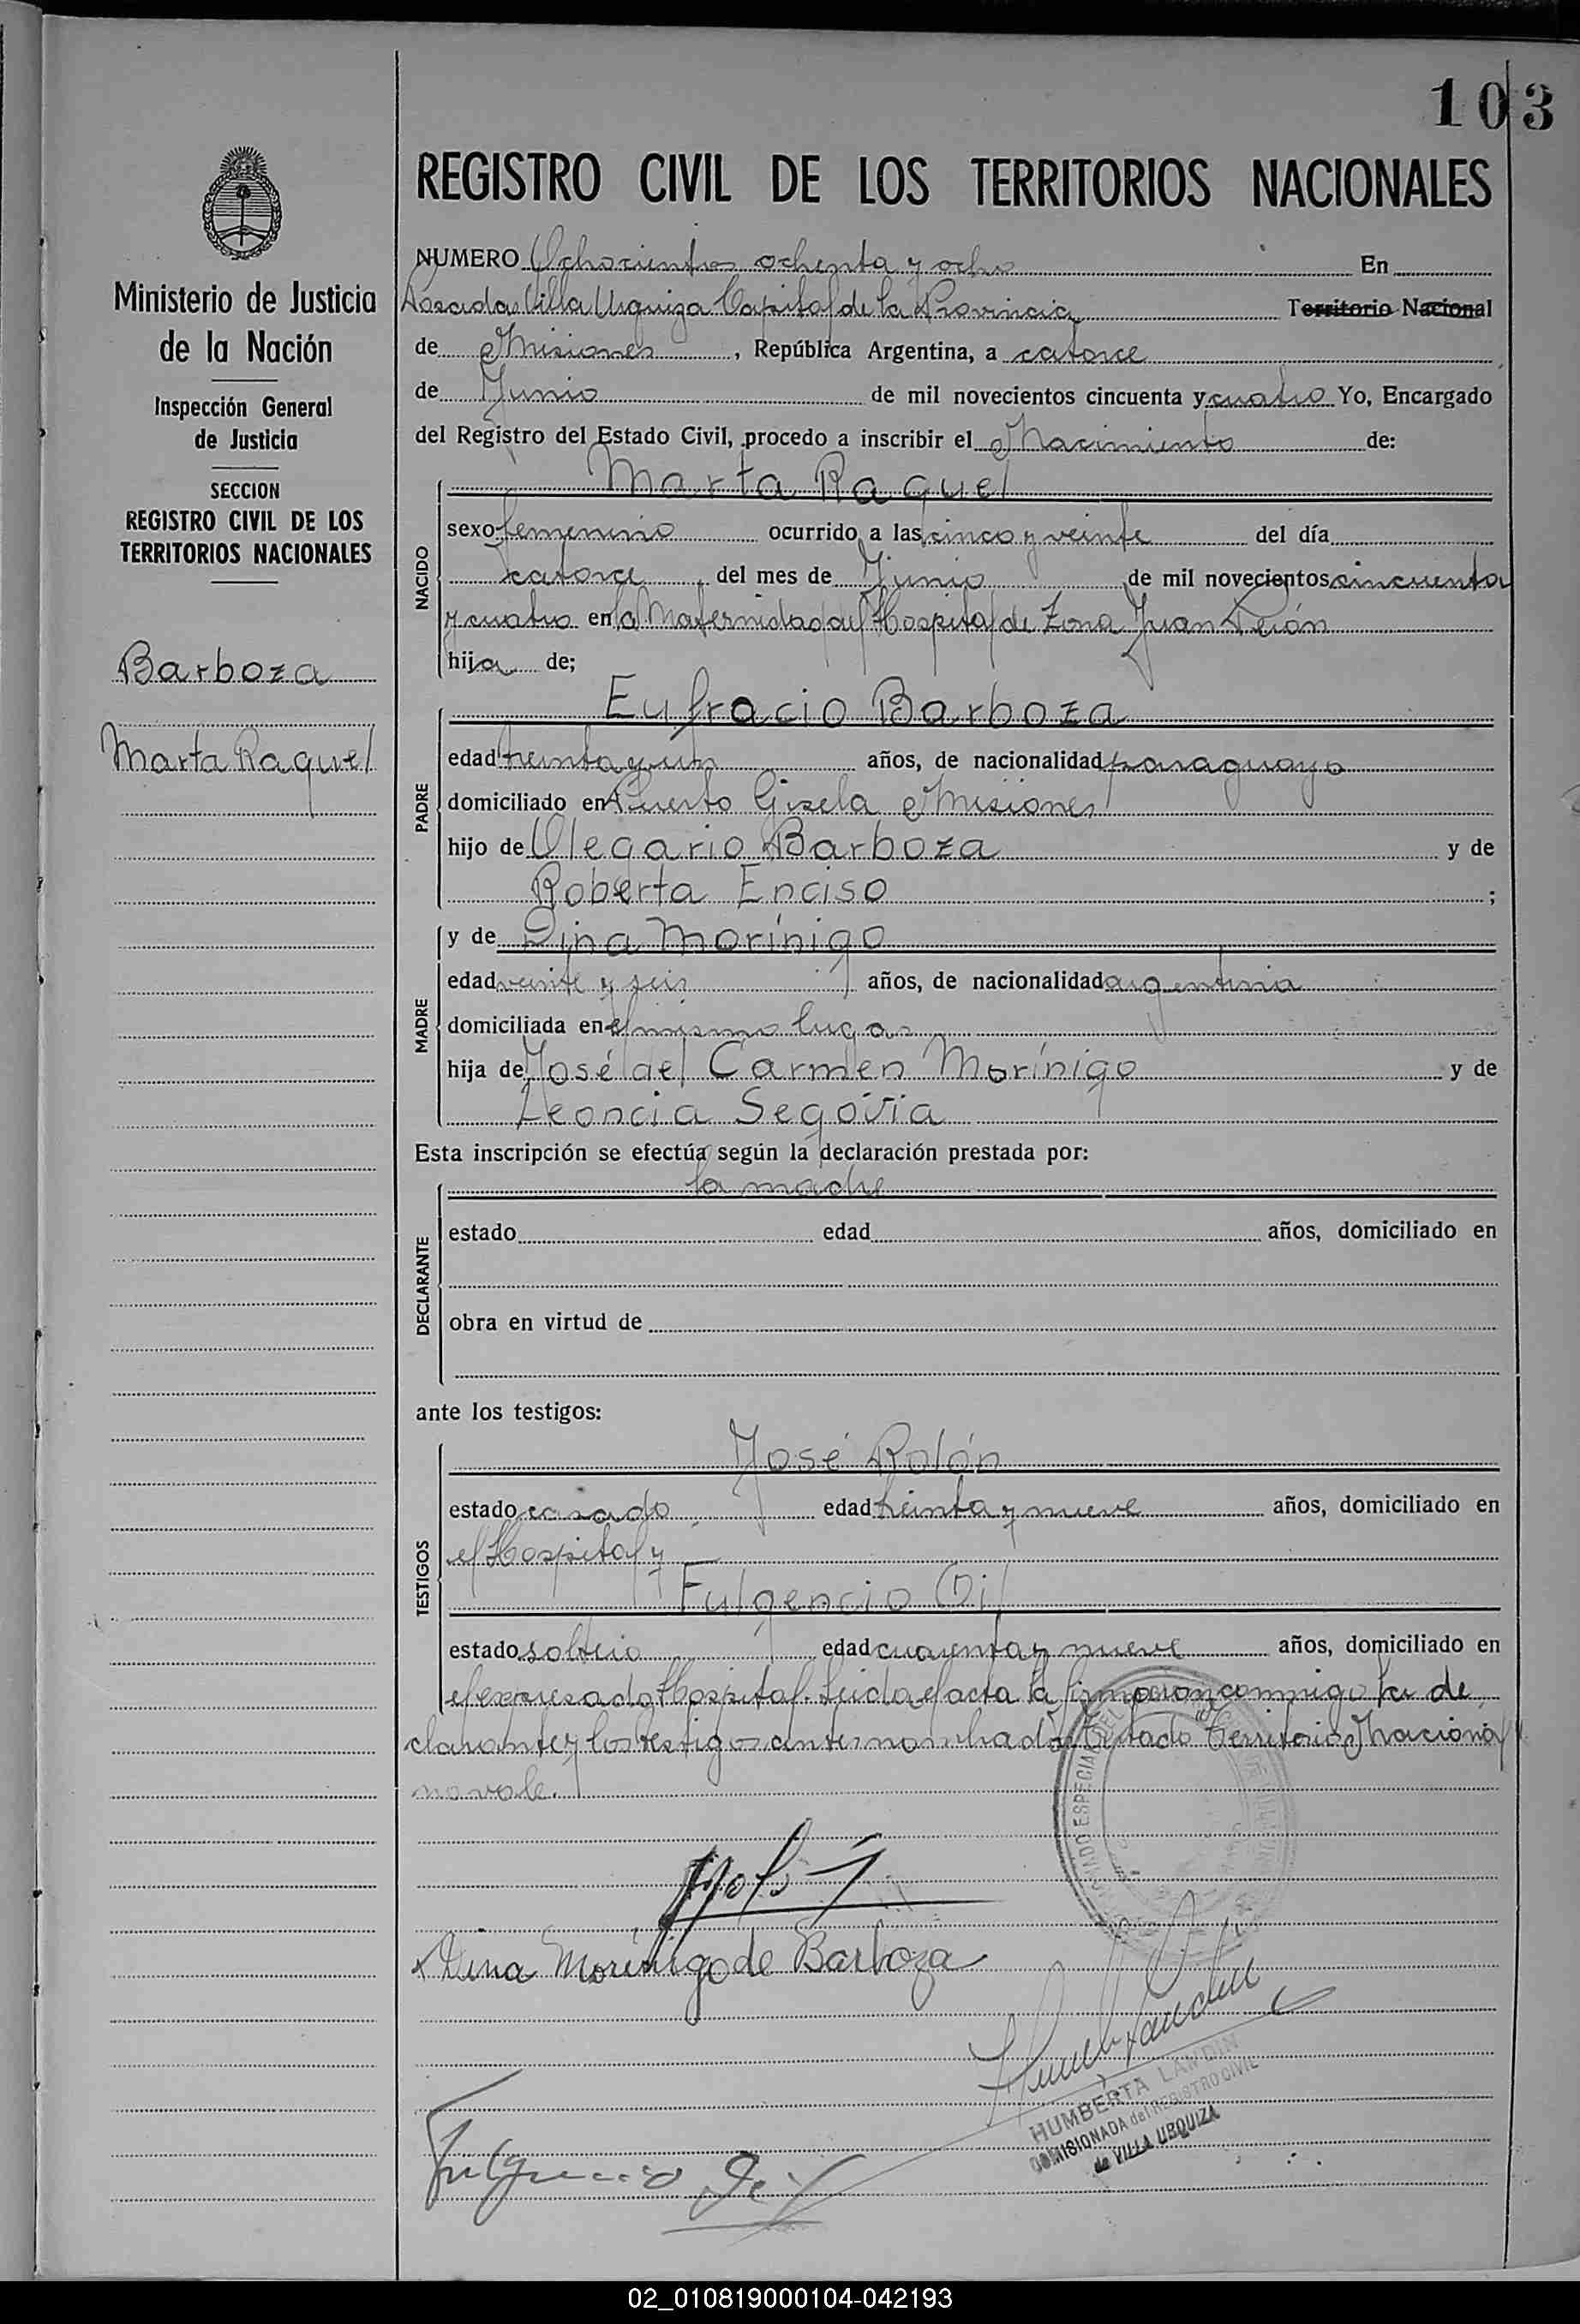 103
REGISTRO CIVIL DE LOS TERRITORIOS NACIONALES
NUMERO Ochocientos ochenta y ocho En
Posadas Villa Urquiza Capital de la Provincia Territorio Nacional
de Misiones, República Argentina, a catorce
de Junio de mil novecientos cincuenta y cuatro Yo, Encargado
del Registro del Estado Civil, procedo a inscribir el Nacimiento de:
Ministerio de Justicia
de la Nación
Inspección General
de Justicia
SECCION
REGISTRO CIVIL DE LOS
TERRITORIOS NACIONALES
Barboza
Marta Raquel
NACIDO
Marta Raquel
sexo femenino ocurrido a las cinco y veinte del día
catorce, del mes de Junio de mil novecientos cincuenta
y cuatro en la Maternidad del Hospital de Zona Juan Perón
hija de;
PADRE
Eufracio Barboza
edad treinta y un años, de nacionalidad paraguayo
domiciliado en Puerto Gisela Misiones
hijo de Olegario Barboza y de
Roberta Enciso ;
MADRE
y de Dina Morínigo
edad veinte y seis años, de nacionalidad argentina
domiciliada en el mismo lugar
hija de José del Carmen Morínigo y de
Leoncia Segovia
Esta inscripción se efectúa según la declaración prestada por:
DECLARANTE
la madre
estado edad años, domiciliado en
obra en virtud de
ante los testigos:
TESTIGOS
José Rolón
estado casado edad treinta y nueve años, domiciliado en
el Hospital y
Fulgencio Gil
estado soltero edad cuarenta y nueve años, domiciliado en
el expresado Hospital. Leida el acta la firmaron conmigo la de
clarante y los testigos antes nombrados. Testado Territorio Nacional
no vale.
Dina Morínigo de Barboza
HUMBERTA LANDIN
COMISIONADA del REGISTRO CIVIL
de VILLA URQUIZA
02_010819000104-042193